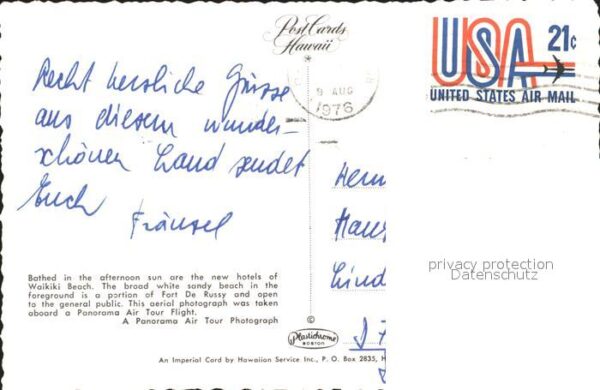 Post Cards
Hawaii
USA 21c
UNITED STATES AIR MAIL
9 AUG
1976
Recht herzliche Grüsse
aus diesem wunder-
schönen Land sendet
Euch
Fränzel
Herrn
Hans
Lind
privacy protection
Datenschutz
Bathed in the afternoon sun are the new hotels of
Waikiki Beach. The broad white sandy beach in the
foreground is a portion of Fort De Russy and open
to the general public. This aerial photograph was taken
aboard a Panorama Air Tour Flight.
A Panorama Air Tour Photograph
©
Plastichrome
BOSTON
An Imperial Card by Hawaiian Service Inc., P. O. Box 2835, H